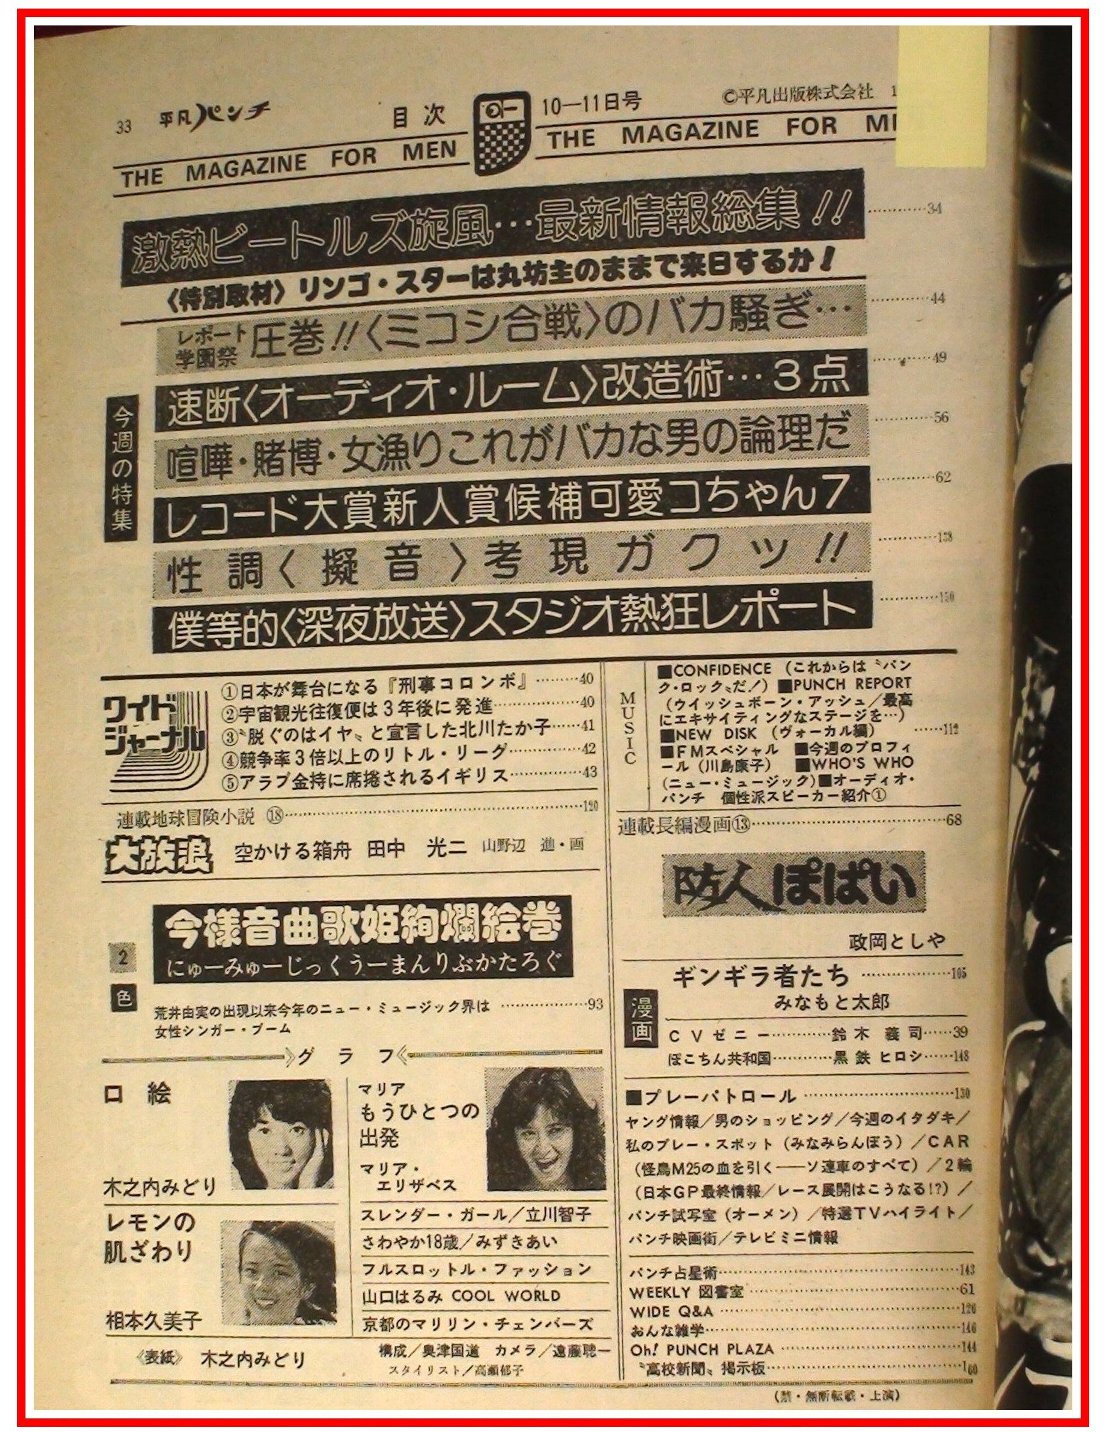 33 平凡パンチ 目次 10—11日号 ©平凡出版株式会社
THE MAGAZINE FOR MEN THE MAGAZINE FOR
激熱ビートルズ旋風…最新情報総集!! 34
〈特別取材〉リンゴ・スターは丸坊主のままで来日するか!
今週の特集
レポート学園祭 圧巻!!〈ミコシ合戦〉のバカ騒ぎ… 44
速断〈オーディオ・ルーム〉改造術…3点 49
喧嘩・賭博・女漁りこれがバカな男の論理だ 56
レコード大賞新人賞候補可愛コちゃん7 62
性調〈擬音〉考現ガクッ!!
僕等的〈深夜放送〉スタジオ熱狂レポート
ワイドジャーナル
①日本が舞台になる『刑事コロンボ』………40
②宇宙観光往復便は3年後に発進…………40
③〝脱ぐのはイヤ〟と宣言した北川たか子……41
④競争率3倍以上のリトル・リーグ…………42
⑤アラブ金持に席捲されるイギリス…………43
連載地球冒険小説 ⑱………120
大放浪 空かける箱舟 田中 光二 山野辺 進・画
2色
今様音曲歌姫絢爛絵巻
にゅーみゅーじっくうーまんりぶかたろぐ
荒井由実の出現以来今年のニュー・ミュージック界は…………93
女性シンガー・ブーム
グラフ
口絵
木之内みどり
レモンの
肌ざわり
相本久美子
《表紙》 木之内みどり
マリア
もうひとつの
出発
マリア・
エリザベス
スレンダー・ガール／立川智子
さわやか18歳／みずきあい
フルスロットル・ファッション
山口はるみ COOL WORLD
京都のマリリン・チェンバーズ
構成／奥津国道 カメラ／遠藤聴一
スタイリスト／高瀬郁子
MUSIC
■CONFIDENCE (これからは〝パン
ク・ロック〟だ!) ■PUNCH REPORT
(ウイッシュボーン・アッシュ／最高
にエキサイティングなステージを…)
■NEW DISK (ヴォーカル編) ……112
■FMスペシャル ■今週のプロフィ
ール (川島康子) ■WHO'S WHO
(ニュー・ミュージック) ■オーディオ・
パンチ 個性派スピーカー紹介①
連載長編漫画⑬………68
防人ぽぱい
政岡としや
漫画
ギンギラ者たち………105
みなもと太郎
CVゼニー………鈴木義司……39
ぽこちん共和国………黒鉄ヒロシ……148
■プレーパトロール………130
ヤング情報／男のショッピング／今週のイタダキ／
私のプレー・スポット (みなみらんぼう) ／CAR
(怪鳥M25の血を引く——ソ連車のすべて) ／2輪
(日本GP最終情報／レース展開はこうなる!?) ／
パンチ試写室 (オーメン) ／特選TVハイライト／
パンチ映画街／テレビミニ情報
パンチ占星術………143
WEEKLY 図書室………61
WIDE Q&A………126
おんな雑学………146
Oh! PUNCH PLAZA………144
〝高校新聞〟掲示板………160
(禁・無断転載・上演)